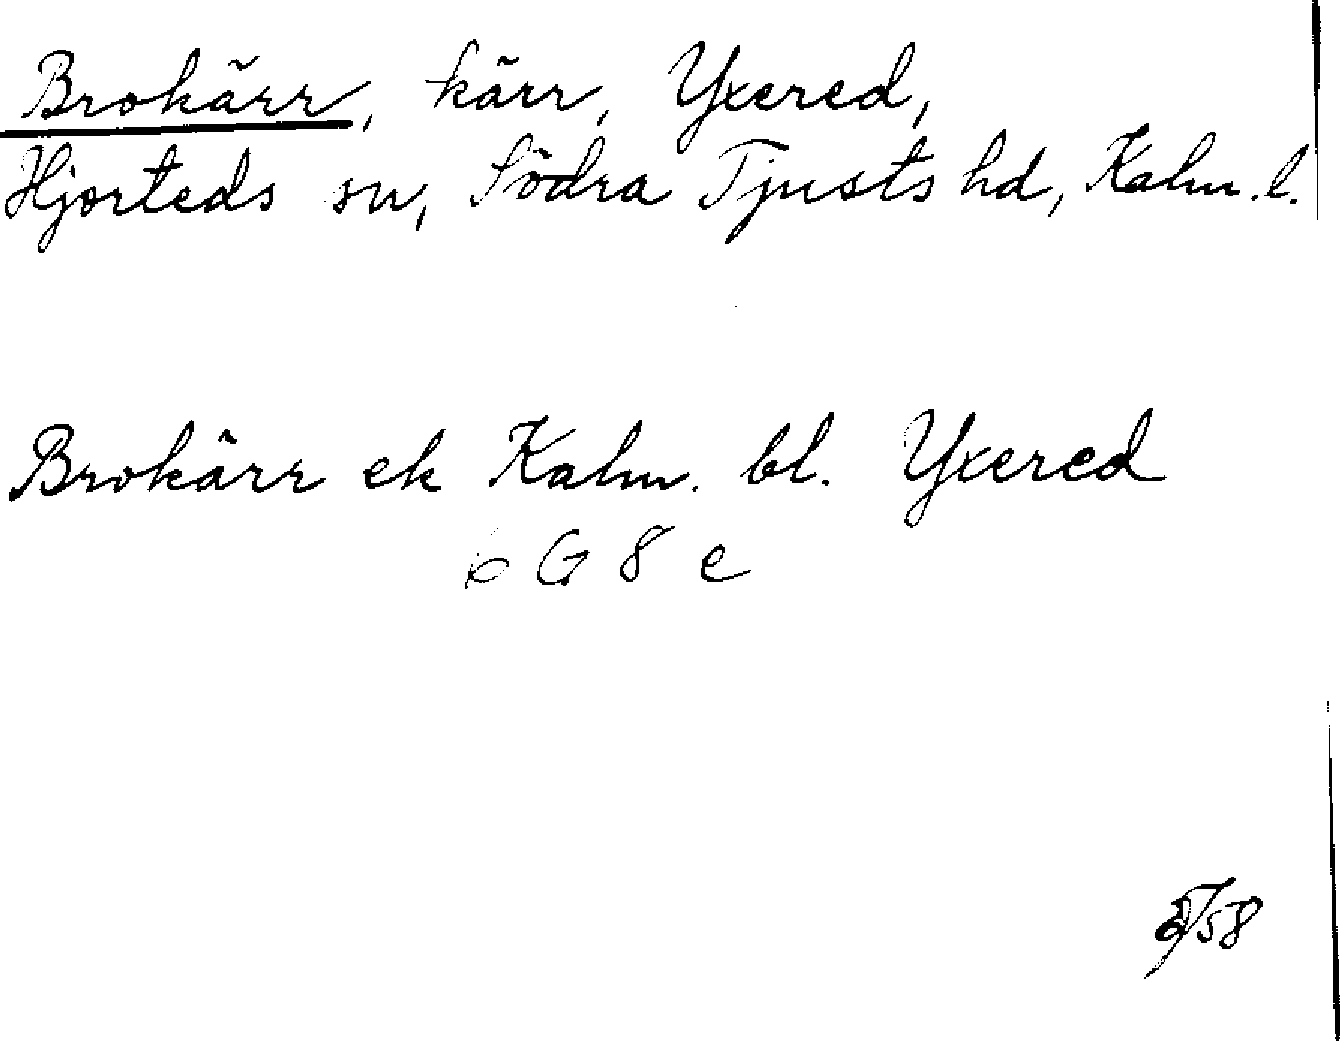 Brokärr, kärr, Yxered,
Hjorteds sn, Södra Tjusts hd, Kalm. l.
Brokärr ek Kalm. bl. Yxered
6 G 8 e